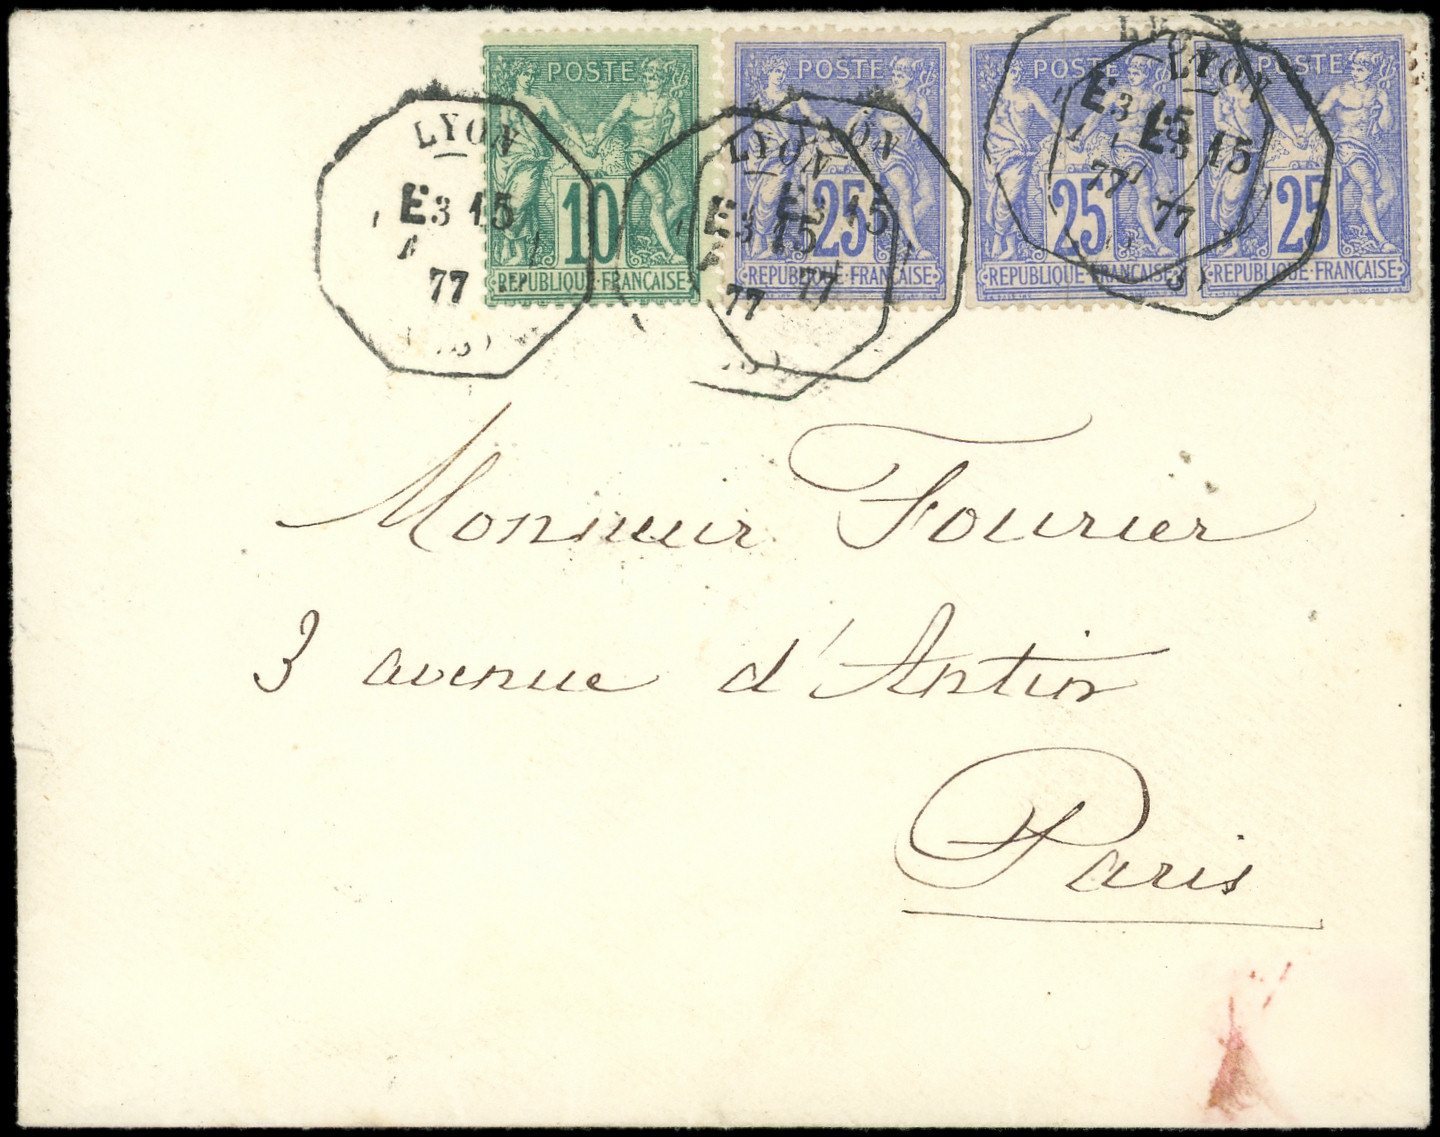 POSTE POSTE POSTE POSTE
10 25 25 25
REPUBLIQUE FRANÇAISE REPUBLIQUE FRANÇAISE REPUBLIQUE FRANÇAISE REPUBLIQUE FRANÇAISE
LYON LYON LYON LYON LYON
E3 15 E3 15 E3 15 E3 15 E3 15
77 77 77 77 77
Monsieur Fourier
3 avenue d'Antin
Paris